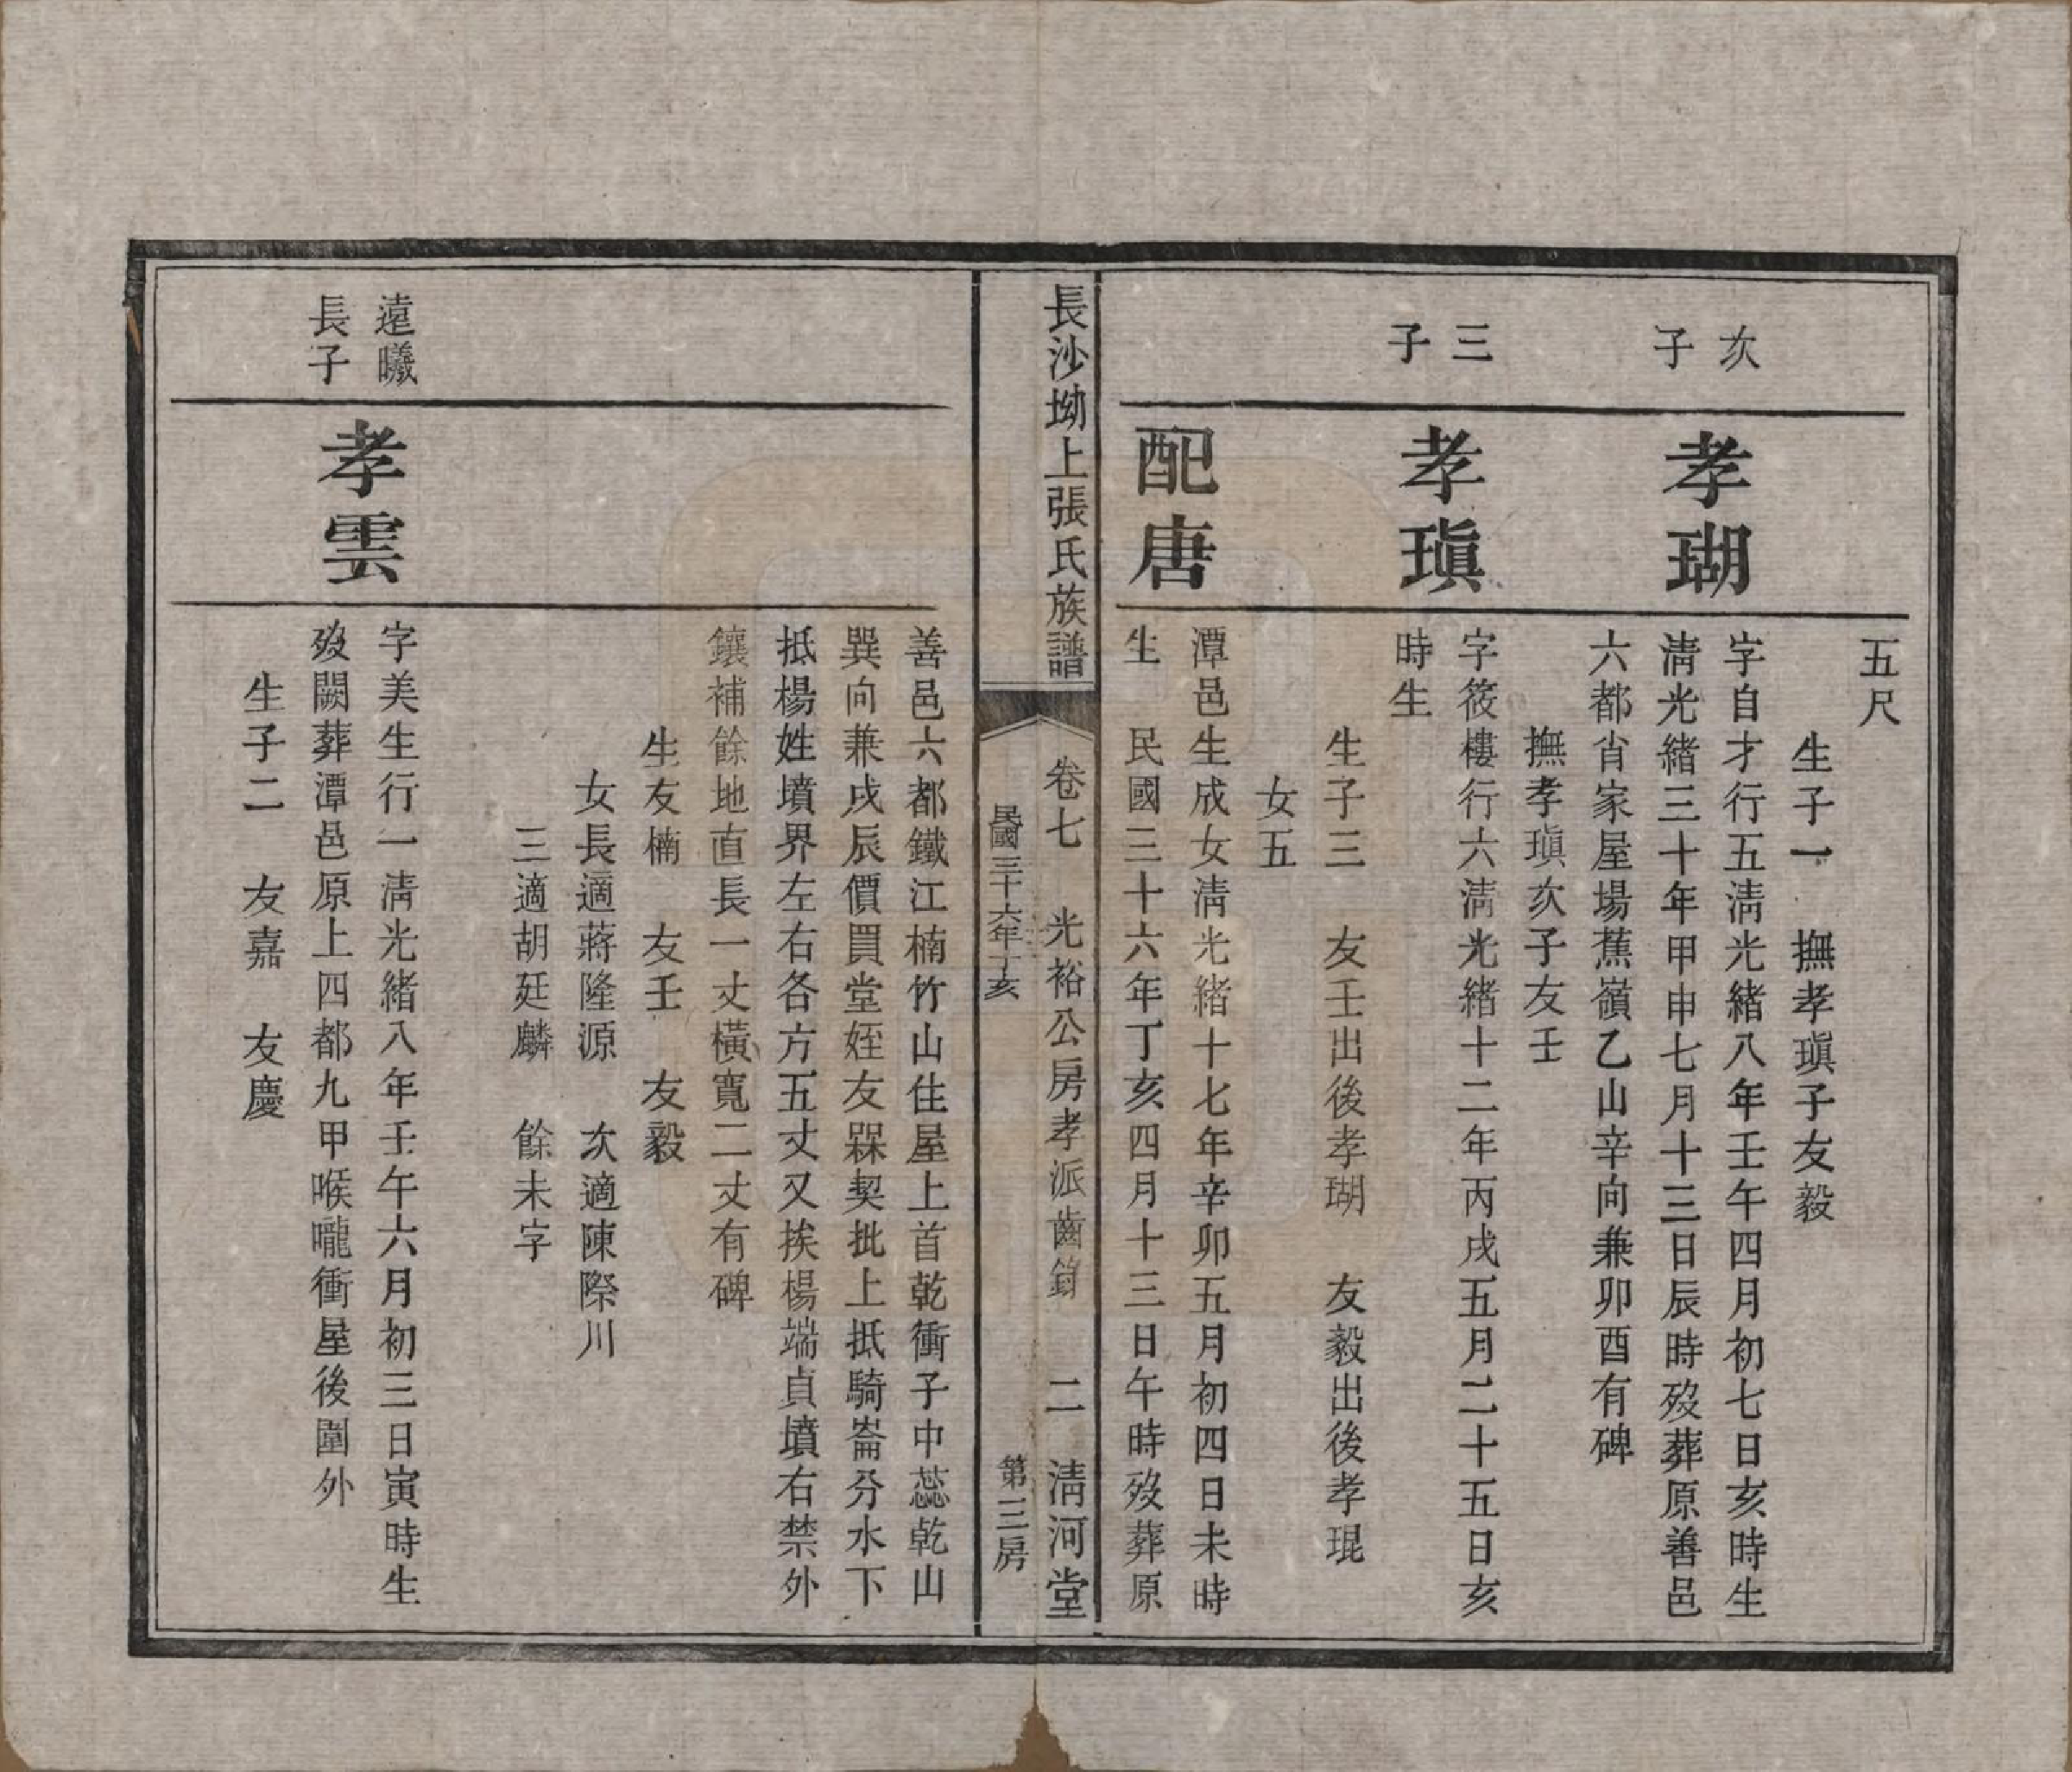 五尺
生子一　撫孝瑱子友毅
次
子
孝瑚
字自才行五淸光緒八年壬午四月初七日亥時生
淸光緒三十年甲申七月十三日辰時歿葬原善邑
六都省家屋場蕉嶺乙山辛向兼卯酉有碑
撫孝瑱次子友壬
三
子
孝瑱
字筱樓行六淸光緒十二年丙戌五月二十五日亥
時生
生子三　友壬出後孝瑚　友毅出後孝琨
女五
配唐
潭邑生成女淸光緒十七年辛卯五月初四日未時
生　民國三十六年丁亥四月十三日午時歿葬原
長沙坳上張氏族譜　卷七　光裕公房孝派齒錄　二　淸河堂
民國三十六年丁亥　第三房
善邑六都鐵江楠竹山住屋上首乾衝子中蕊乾山
巽向兼戌辰價買堂姪友槑契批上抵騎崙分水下
抵楊姓墳界左右各方五丈又挨楊端貞墳右禁外
鑲補餘地直長一丈橫寬二丈有碑
生友楠　友壬　友毅
女長適蔣隆源　次適陳際川
三適胡廷麟　餘未字
遠曦
長子
孝雲
字美生行一淸光緒八年壬午六月初三日寅時生
歿闕葬潭邑原上四都九甲喉嚨衝屋後園外
生子二　友嘉　友慶